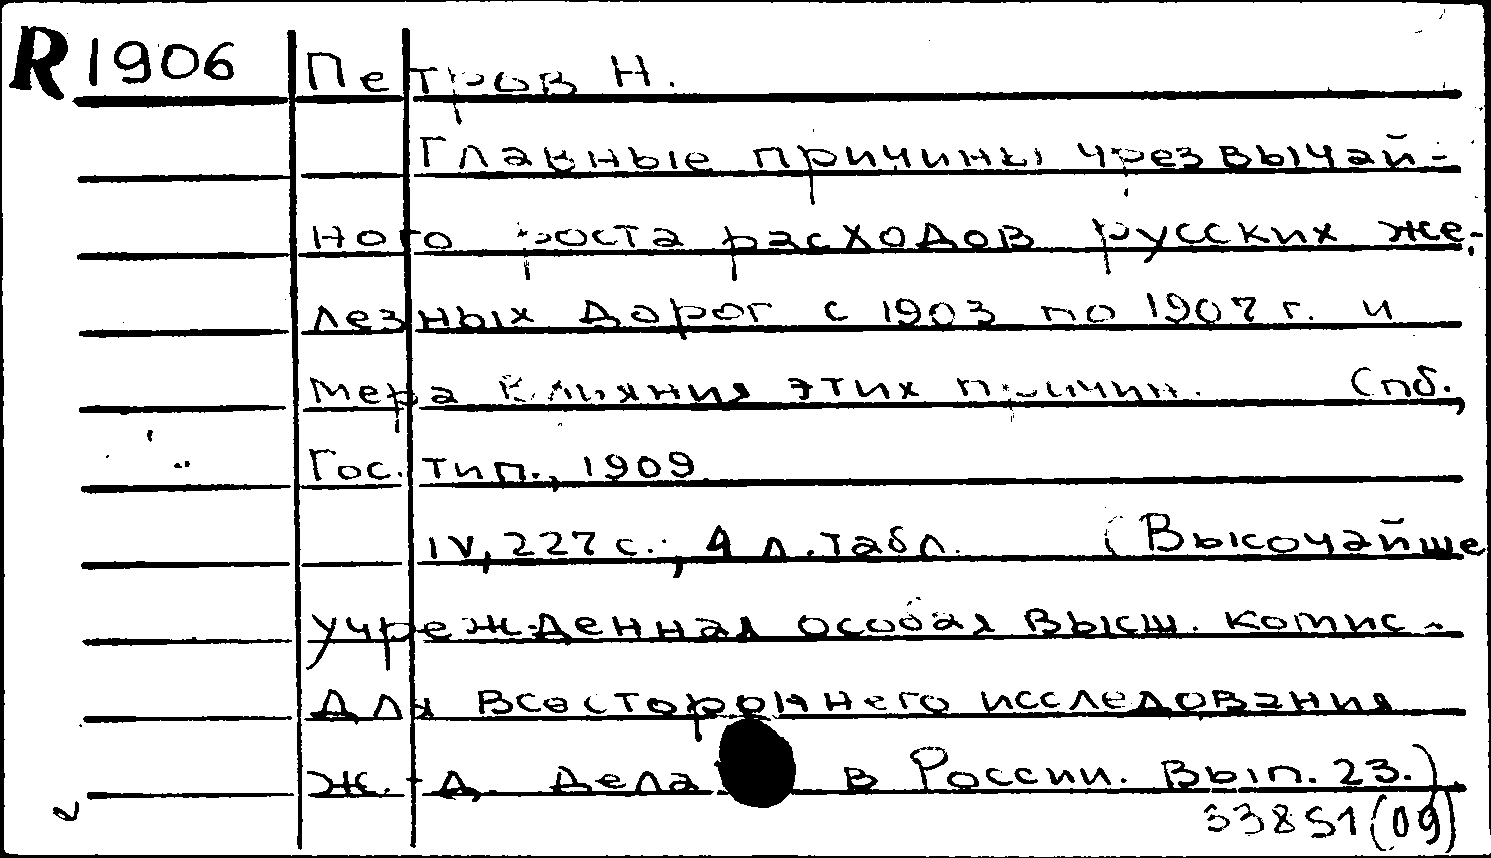 R 1906 Петров Н.
Главные причины чрезвычай-
ного роста расходов русских же-
лезных дорог с 1903 по 1907 г. и
мера влияния этих причин. Спб.,
Гос. тип., 1909
IV, 227 с.; 4 л. табл. (Высочайше
учрежденная особая высш. комис.
для всестороннего исследования
ж.-д. дела в России. Вып. 23.).
33851(09)